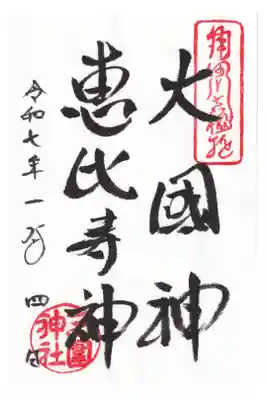 大國神
恵比寿神
令和七年一月四日
神社